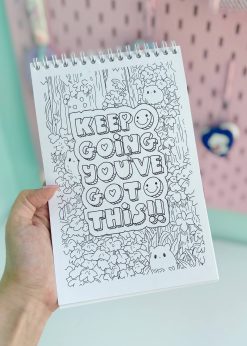 KEEP
GOING
YOU'VE
GOT
THIS!!